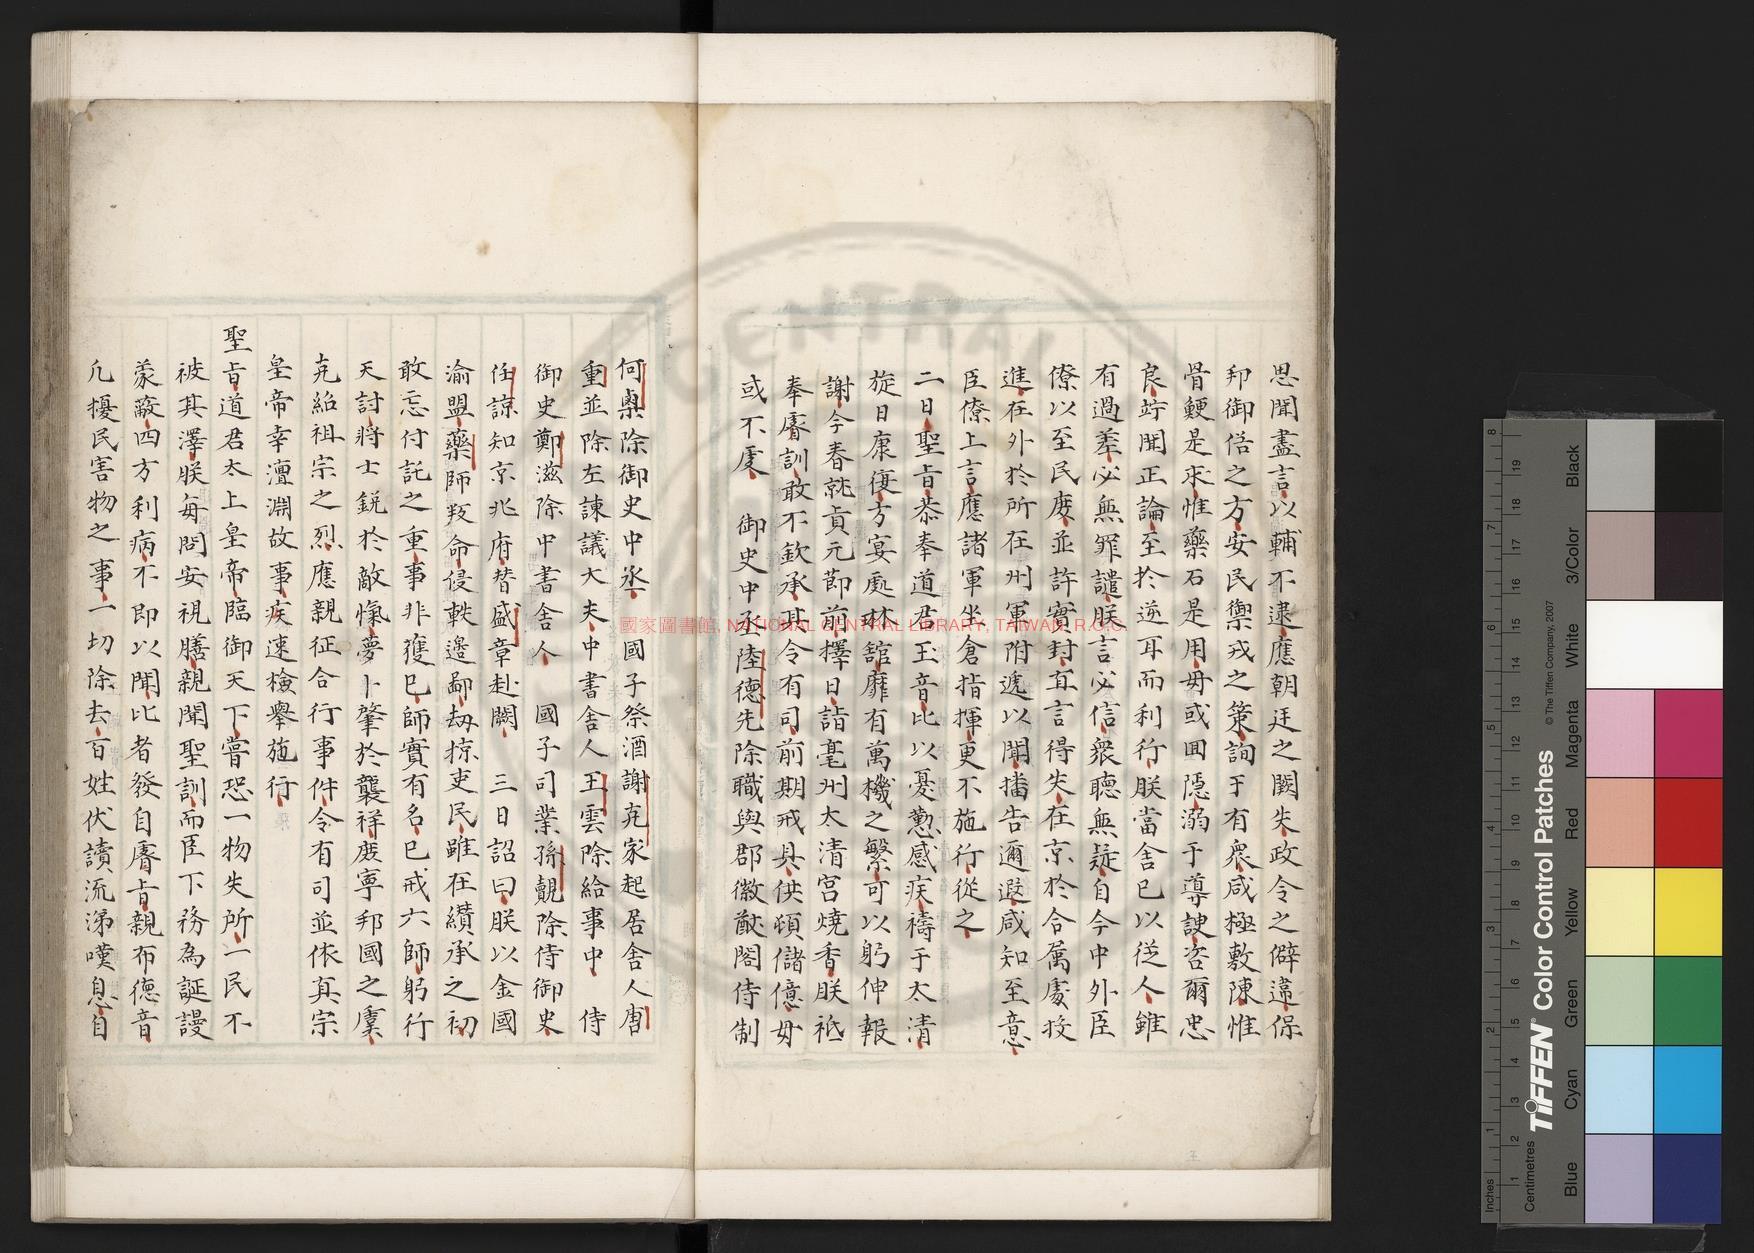 思聞盡言以輔不逮應朝廷之闕失政令之僻違保
邦御俗之方安民禦戎之策詢于有衆咸極敷陳惟
骨鯁是求惟藥石是用毋或回隱溺于導諛咨爾忠
良竚聞正論至於逆耳而利行朕當舍已以從人雖
有過差必無罪譴朕言必信衆聽無疑自今中外臣
僚以至民庶並許實封直言得失在京於合属處投
進在外於所在州軍附遞以聞播告邇遐咸知至意
臣僚上言應諸軍坐倉指揮更不施行從之
二日聖旨恭奉道君玉音比以憂懃感疾禱于太清
旋日康復方宴處琳館靡有萬機之繁可以躬伸報
謝今春就貞元節前擇日詣亳州太清宮燒香朕祗
奉睿訓敢不欽承其令有司前期戒具供頓儲偫毋
或不虔 御史中丞陸德先除職與郡徽猷閣侍制
何㮚除御史中丞 國子祭酒謝克家起居舍人唐
重並除左諫議大夫中書舍人王雲除給事中 侍
御史鄭滋除中書舍人 國子司業孫覿除侍御史
任諒知京兆府替盛章赴闕 三日詔曰朕以金國
渝盟藥師叛命侵軼邊鄙劫掠吏民雖在纘承之初
敢忘付託之重事非獲已師實有名已戒六師躬行
天討將士銳於敵愾夢卜肇於襲祥庶寧邦國之虞
克紹祖宗之烈應親征合行事件令有司並依真宗
皇帝幸澶淵故事疾速檢舉施行
聖旨道君太上皇帝臨御天下嘗恐一物失所一民不
被其澤朕每問安視膳親聞聖訓而臣下務為誕謾
蒙蔽四方利病不即以聞比者發自睿旨親布德音
凡擾民害物之事一切除去百姓伏讀流涕嘆息自
國家圖書館, NATIONAL CENTRAL LIBRARY, TAIWAN, R.O.C.
CENTRAL
Inches
Centimetres
TIFFEN® Color Control Patches
© The Tiffen Company, 2007
Blue
Cyan
Green
Yellow
Red
Magenta
White
3/Color
Black